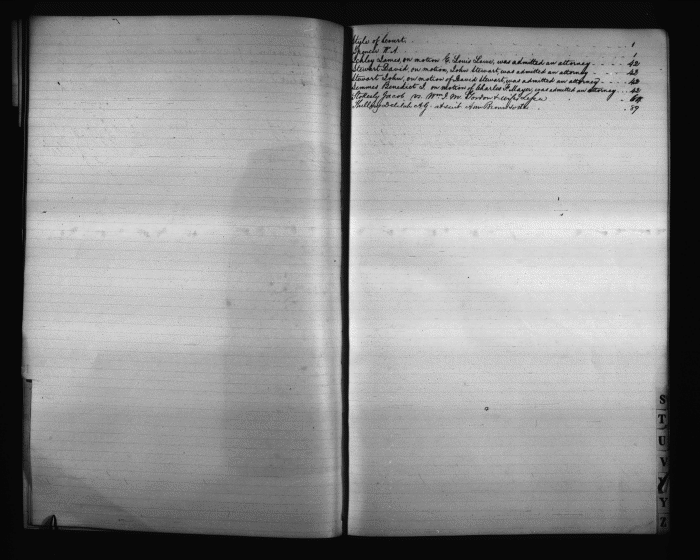 Style of Court. 1
Spencer H. A. 1
Schley James, on motion C. Louis Lowe, was admitted an attorney 42
Stewart David, on motion, John Stewart was admitted an attorney 43
Stewart John, on motion of David Stewart, was admitted an attorney 43
Semmes Benedict I. on motion of Charles F. Mayer, was admitted an attorney 43
Jacob vs. Wm. I. M. Gordon & wife
at suit 59
S
T
U
V
Y
Z